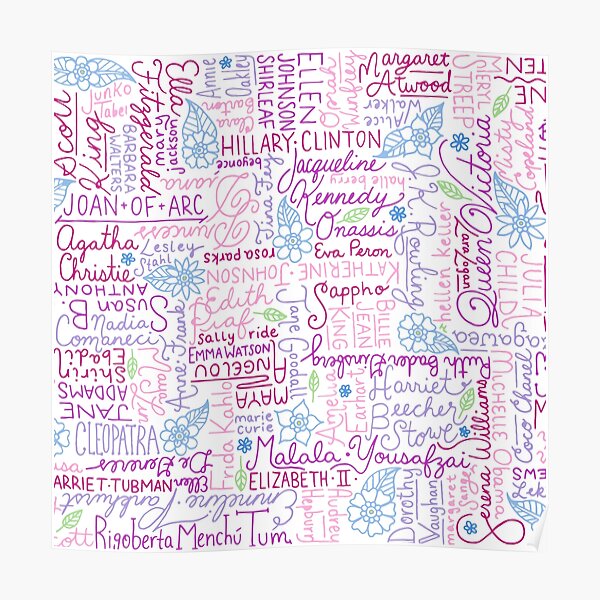 Scott
King
Junko
Tabei
BARBARA
WALTERS
Ella
Fitzgerald
mary
jackson
Anne
Oakley
Clara
Barton
ELLEN
JOHNSON
SHIRLEAF
Oprah
Winfrey
Margaret
Atwood
Alice
Walker
MERYL
STREEP
Misty
Copeland
HILLARY CLINTON
beyonce
Jacqueline
Kennedy
Onassis
halle berry
J.K. Rowling
Queen Victoria
Lara Logan
hellen keller
JULIA
CHILD
JOAN + OF + ARC
Princess
Diana
Tina Fey
Agatha
Christie
Lesley
Stahl
rosa parks
Eva Peron
KATHERINE
JOHNSON
Sappho
Susan B.
ANTHONY
Nadia
Comaneci
Anne Frank
Edith
Piaf
Jane Goodall
BILLIE
JEAN
KING
sally ride
EMMA WATSON
MAYA
ANGELOU
Ruth Bader Ginsberg
Shirin
Ebadi
JANE
ADDAMS
Maya
Lin
Frida Kahlo
marie
curie
Amelia
Earhart
Harriet
Beecher
Stowe
Serena Williams
MICHELLE Obama
Coco Chanel
CLEOPATRA
Malala Yousafzai
Ellen
De Generes
ARRIET TUBMAN
ELIZABETH II
Emmeline Pankhurst
Audrey
Hepburn
Dorothy
Vaughan
margaret
Sanger
ott
Rigoberta Menchú Tum